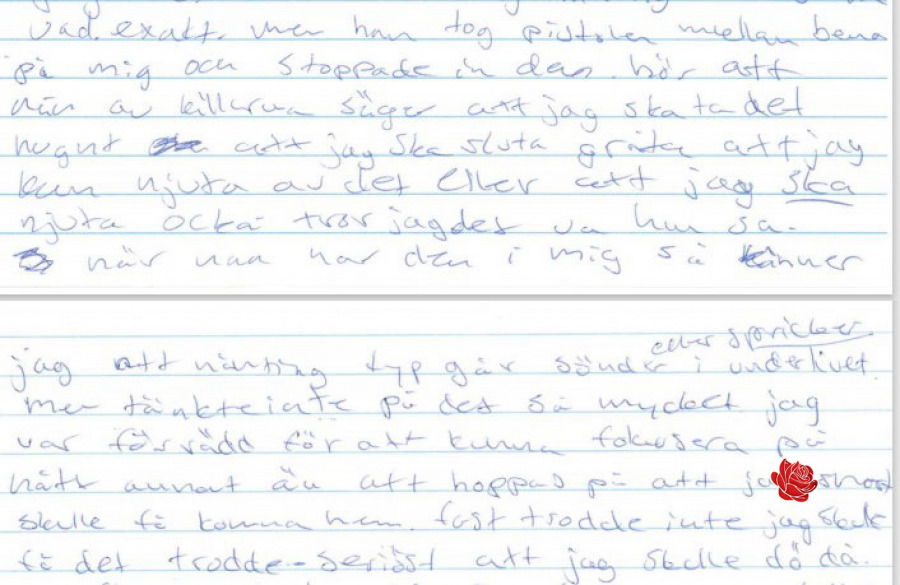 vad. exakt. men han tog pistolen mellan bena
på mig och stoppade in den. hör att
nån av killarna säger att jag ska ta det
lugnt att jag ska sluta gråta att jag
kan njuta av det eller att jag ska
njuta ockå tror jag det va han sa.
när han har den i mig så känner
eller spricker
jag att nånting typ går sönder i underlivet
men tänkte inte på det så mycket jag
var för rädd för att kunna fokusera på
nått annat än att hoppas på att snart
skulle få komma hem. fast trodde inte jag skulle
få det trodde seriöst att jag skulle dö då.